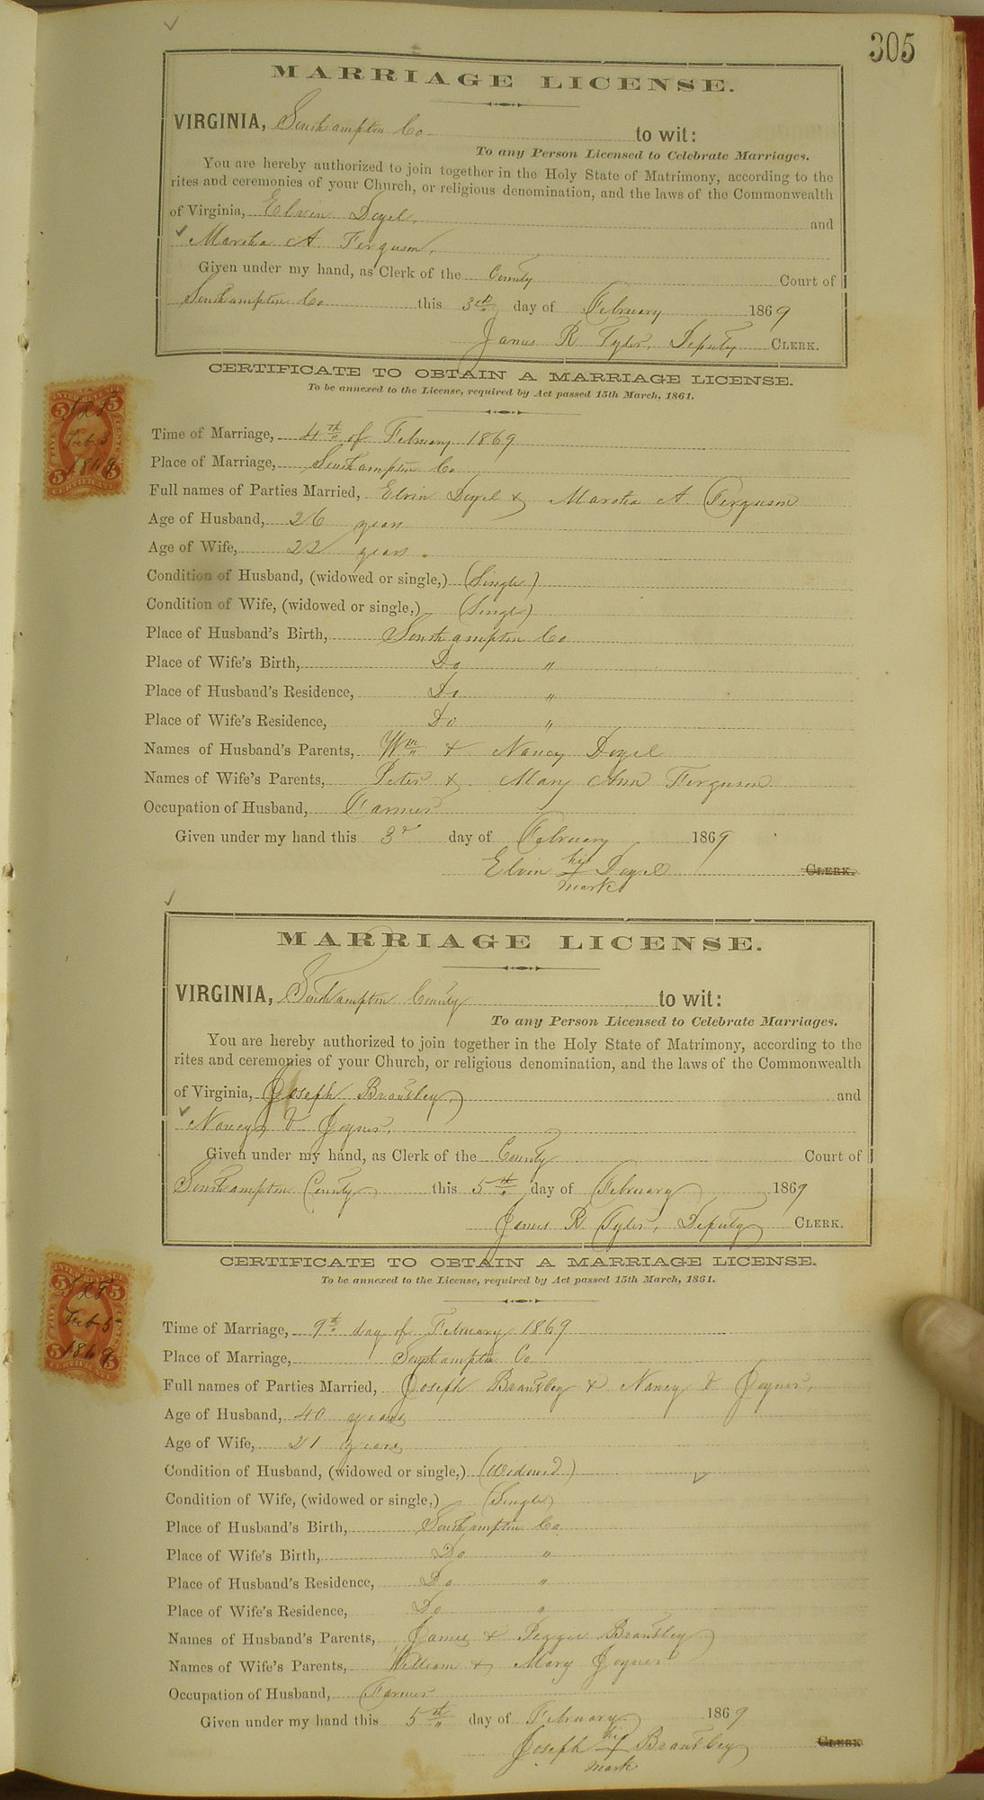 305
MARRIAGE LICENSE.
VIRGINIA, Southampton Co to wit:
To any Person Licensed to Celebrate Marriages.
You are hereby authorized to join together in the Holy State of Matrimony, according to the
rites and ceremonies of your Church, or religious denomination, and the laws of the Commonwealth
of Virginia, Elvin Doyel, and
Martha A Ferguson,
Given under my hand, as Clerk of the County Court of
Southampton Co this 3rd day of February 1869
James R Tyler, Deputy CLERK.
CERTIFICATE TO OBTAIN A MARRIAGE LICENSE.
To be annexed to the License, required by Act passed 15th March, 1861.
Feb 3
1869
Time of Marriage, 4th of February 1869
Place of Marriage, Southampton Co
Full names of Parties Married, Elvin Doyel & Martha A. Ferguson
Age of Husband, 26 years
Age of Wife, 22 years.
Condition of Husband, (widowed or single,) (Single)
Condition of Wife, (widowed or single,) (Single)
Place of Husband's Birth, Southampton Co
Place of Wife's Birth, Do "
Place of Husband's Residence, Do "
Place of Wife's Residence, Do "
Names of Husband's Parents, Wm & Nancy Doyel
Names of Wife's Parents, Peter & Mary Ann Ferguson
Occupation of Husband, Farmer
Given under my hand this 3d day of February 1869
Elvin his Doyel CLERK.
mark
MARRIAGE LICENSE.
VIRGINIA, Southampton County to wit:
To any Person Licensed to Celebrate Marriages.
You are hereby authorized to join together in the Holy State of Matrimony, according to the
rites and ceremonies of your Church, or religious denomination, and the laws of the Commonwealth
of Virginia, Joseph Brantley, and
Nancy V Joyner,
Given under my hand, as Clerk of the County Court of
Southampton County this 5th day of February 1869
James R. Tyler, Deputy CLERK.
CERTIFICATE TO OBTAIN A MARRIAGE LICENSE.
To be annexed to the License, required by Act passed 15th March, 1861.
Feb 5
1869
Time of Marriage, 9th day of February 1869
Place of Marriage, Southampton Co
Full names of Parties Married, Joseph Brantley & Nancy V Joyner,
Age of Husband, 40 years
Age of Wife, 21 years
Condition of Husband, (widowed or single,) (Widowed)
Condition of Wife, (widowed or single,) (Single)
Place of Husband's Birth, Southampton Co.
Place of Wife's Birth, Do "
Place of Husband's Residence, Do "
Place of Wife's Residence, Do "
Names of Husband's Parents, James & Peggie Brantley
Names of Wife's Parents, William & Mary Joyner
Occupation of Husband, Farmer
Given under my hand this 5th day of February 1869
Joseph his Brantley CLERK
mark